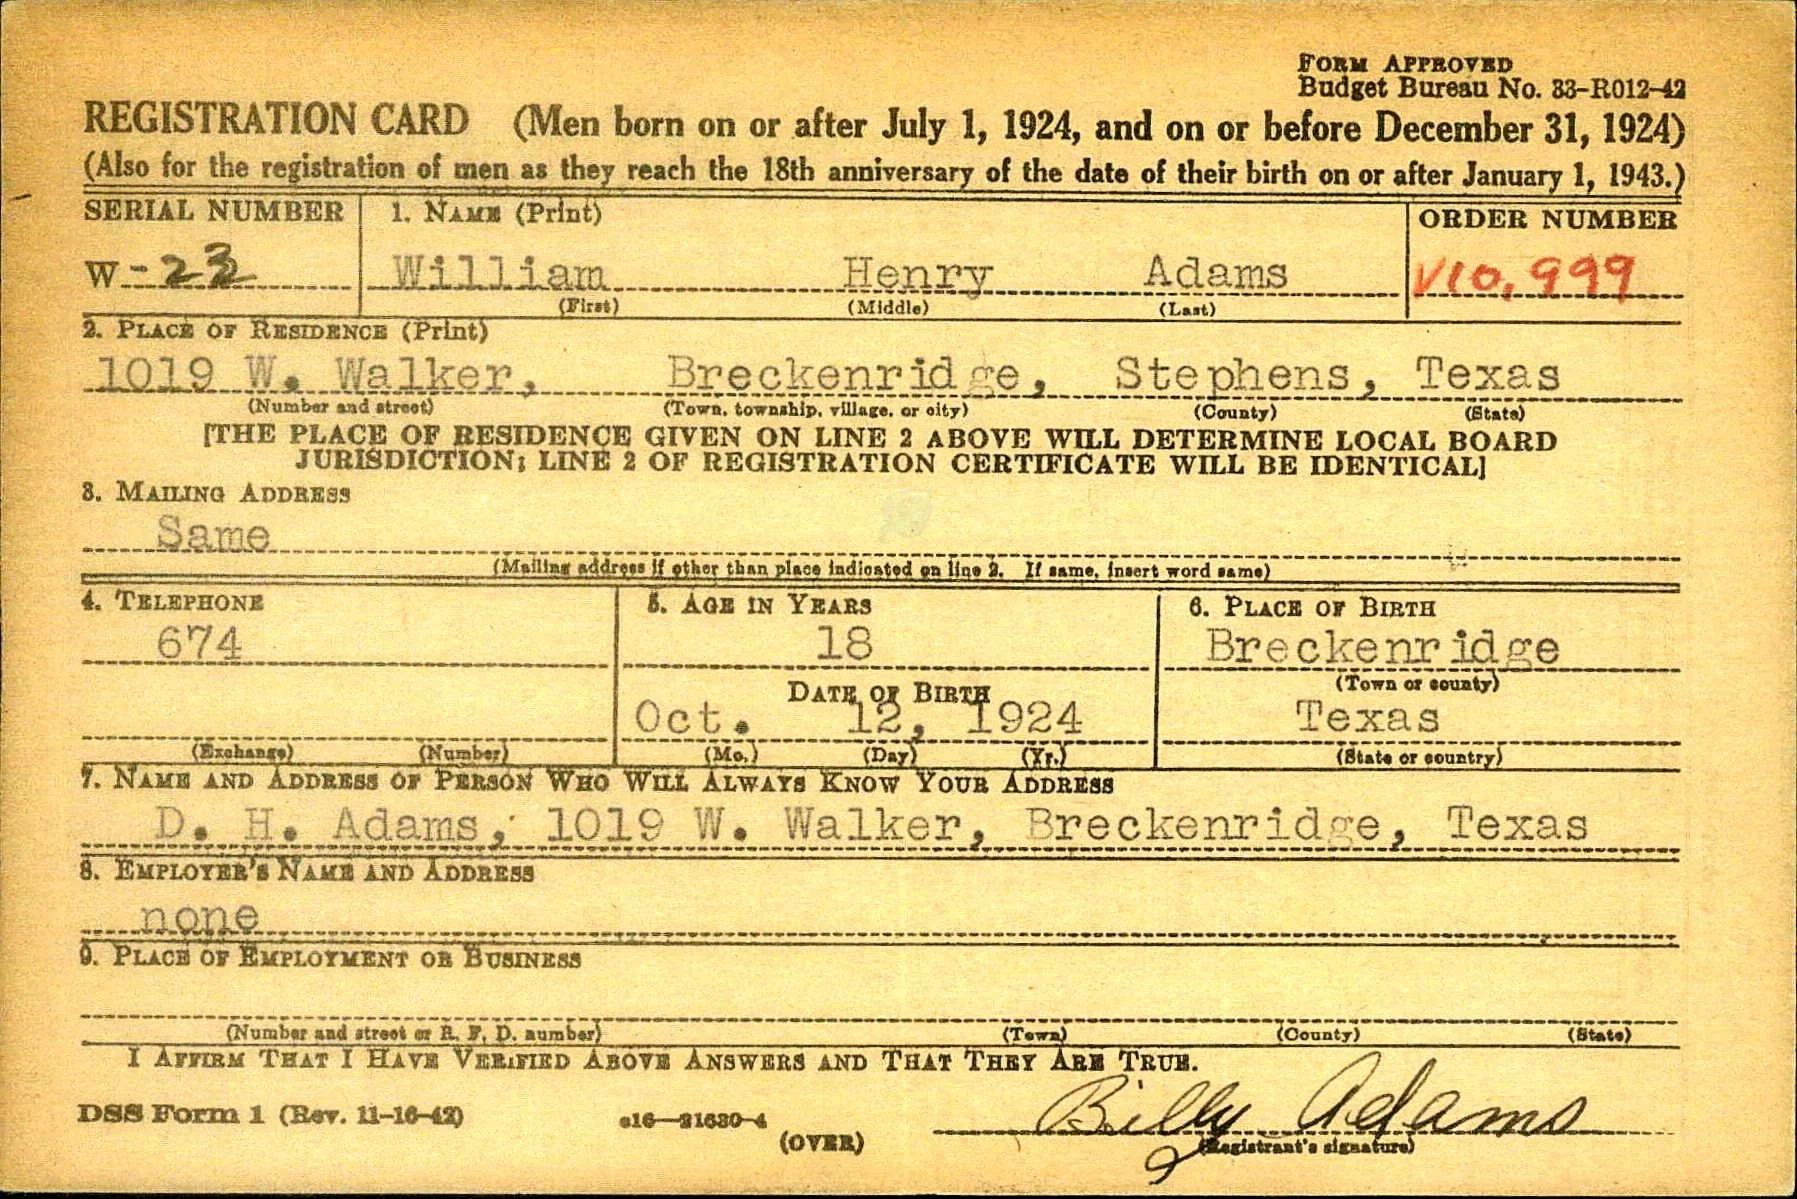 FORM APPROVED
Budget Bureau No. 33-R012-42
REGISTRATION CARD (Men born on or after July 1, 1924, and on or before December 31, 1924)
(Also for the registration of men as they reach the 18th anniversary of the date of their birth on or after January 1, 1943.)
SERIAL NUMBER 1. NAME (Print) ORDER NUMBER
W-23 William Henry Adams V10,999
(First) (Middle) (Last)
2. PLACE OF RESIDENCE (Print)
1019 W. Walker, Breckenridge, Stephens, Texas
(Number and street) (Town, township, village, or city) (County) (State)
[THE PLACE OF RESIDENCE GIVEN ON LINE 2 ABOVE WILL DETERMINE LOCAL BOARD
JURISDICTION; LINE 2 OF REGISTRATION CERTIFICATE WILL BE IDENTICAL]
3. MAILING ADDRESS
Same
(Mailing address if other than place indicated on line 2. If same, insert word same)
4. TELEPHONE 5. AGE IN YEARS 6. PLACE OF BIRTH
674 18 Breckenridge
(Town or county)
DATE OF BIRTH
Oct. 12, 1924 Texas
(Exchange) (Number) (Mo.) (Day) (Yr.) (State or country)
7. NAME AND ADDRESS OF PERSON WHO WILL ALWAYS KNOW YOUR ADDRESS
D. H. Adams, 1019 W. Walker, Breckenridge, Texas
8. EMPLOYER'S NAME AND ADDRESS
none
9. PLACE OF EMPLOYMENT OR BUSINESS
(Number and street or R. F. D. number) (Town) (County) (State)
I AFFIRM THAT I HAVE VERIFIED ABOVE ANSWERS AND THAT THEY ARE TRUE.
DSS Form 1 (Rev. 11-16-42) c16—21630-4 Billy Adams
(OVER) (Registrant's signature)